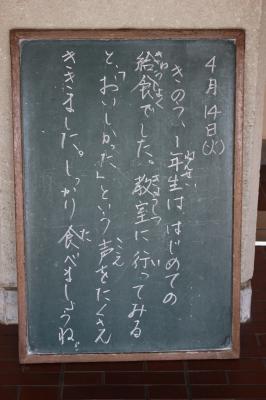 4月14日(火)
きのう、1年生は はじめての
給食でした。教室に行ってみる
と、「おいしかった」という声をたくさん
ききました。しっかり食べましょうね。